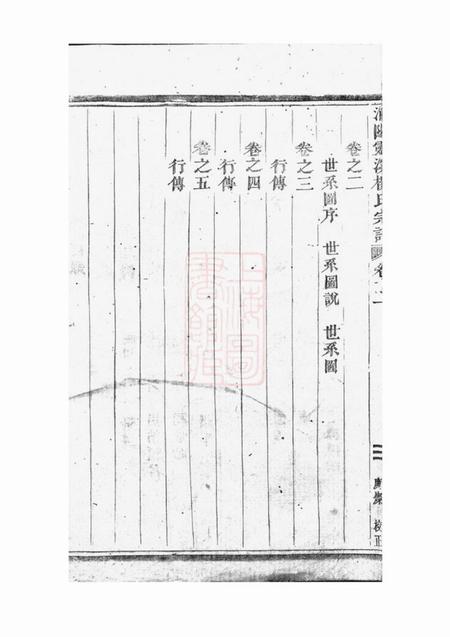 卷之二
世系圖序 世系圖說 世系圖
卷之三
行傳
卷之四
行傳
卷之五
行傳
楊氏宗譜
卷之一
二
校正
上海圖書館藏